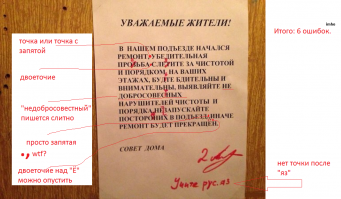 УВАЖАЕМЫЕ ЖИТЕЛИ!
imho
Итого: 6 ошибок.
точка или точка с
запятой
двоеточие
"недобросовестный"
пишется слитно
просто запятая
wtf?
двоеточие над "Ё"
можно опустить
В НАШЕМ ПОДЪЕЗДЕ НАЧАЛСЯ
РЕМОНТ,УБЕДИТЕЛЬНАЯ
ПРОЗЬБА СЛЕДИТЕ ЗА ЧИСТОТОЙ
И ПОРЯДКОМ, НА ВАШИХ
ЭТАЖАХ, БУДТЕ БДИТЕЛЬНЫ И
ВНИМАТЕЛЬНЫ, ВЫЯВЛЯЙТЕ НЕ
ДОБРОСОВЕСНЫХ
НАРУШИТЕЛЕЙ ЧИСТОТЫ И
ПОРЯДКА, НЕ ЗАПУСКАЙТЕ
ПОСТОРОНИХ В ПОДЪЕЗД,ИНАЧЕ
РЕМОНТ БУДЕТ ПРЕКРАЩЁН.
СОВЕТ ДОМА
2
Учите рус.яз
нет точки после
"яз"